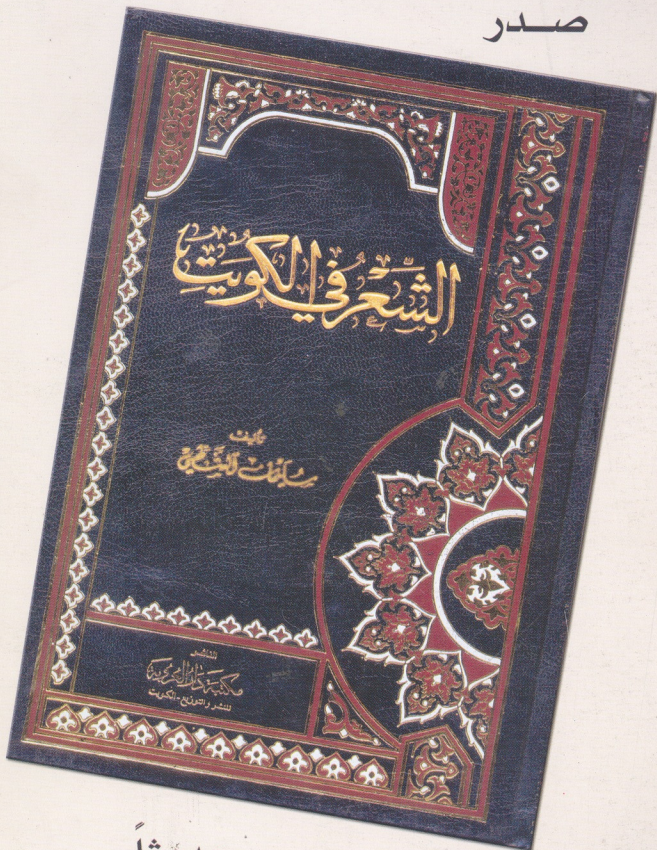 صـــدر
الشعر في الكويت
تأليف
سليمان الشطي
الناشر
مكتبة دار العروبة
للنشر والتوزيع - الكويت